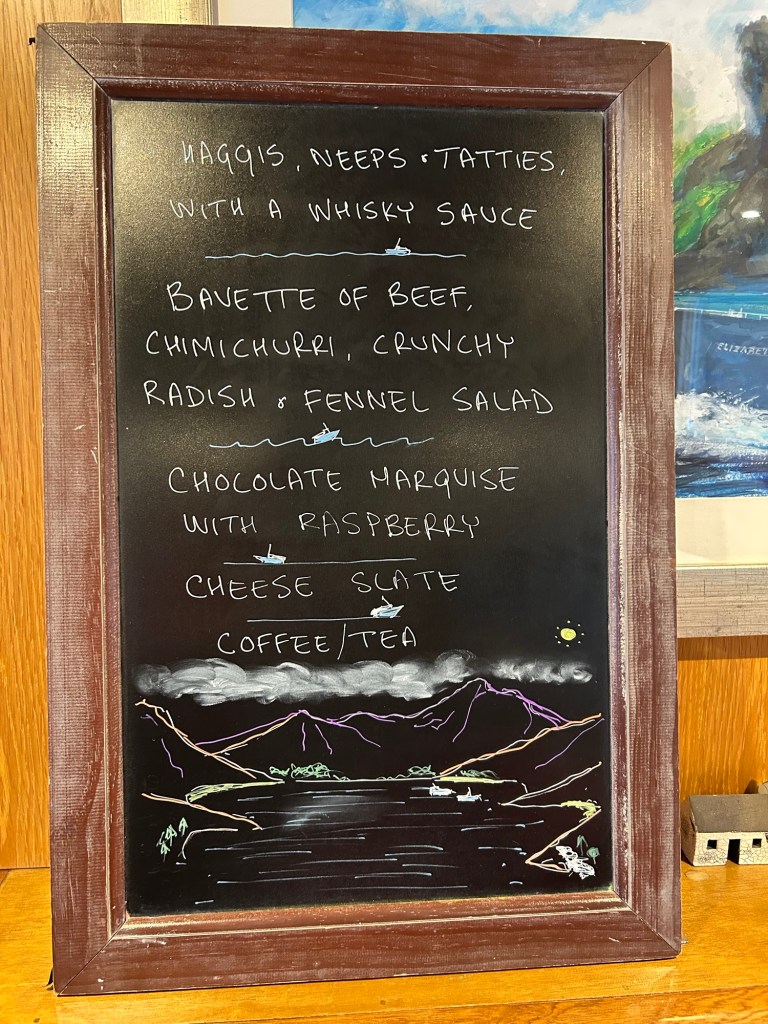 HAGGIS, NEEPS & TATTIES,
WITH A WHISKY SAUCE
BAVETTE OF BEEF,
CHIMICHURRI, CRUNCHY
RADISH & FENNEL SALAD
CHOCOLATE MARQUISE
WITH RASPBERRY
CHEESE SLATE
COFFEE/TEA